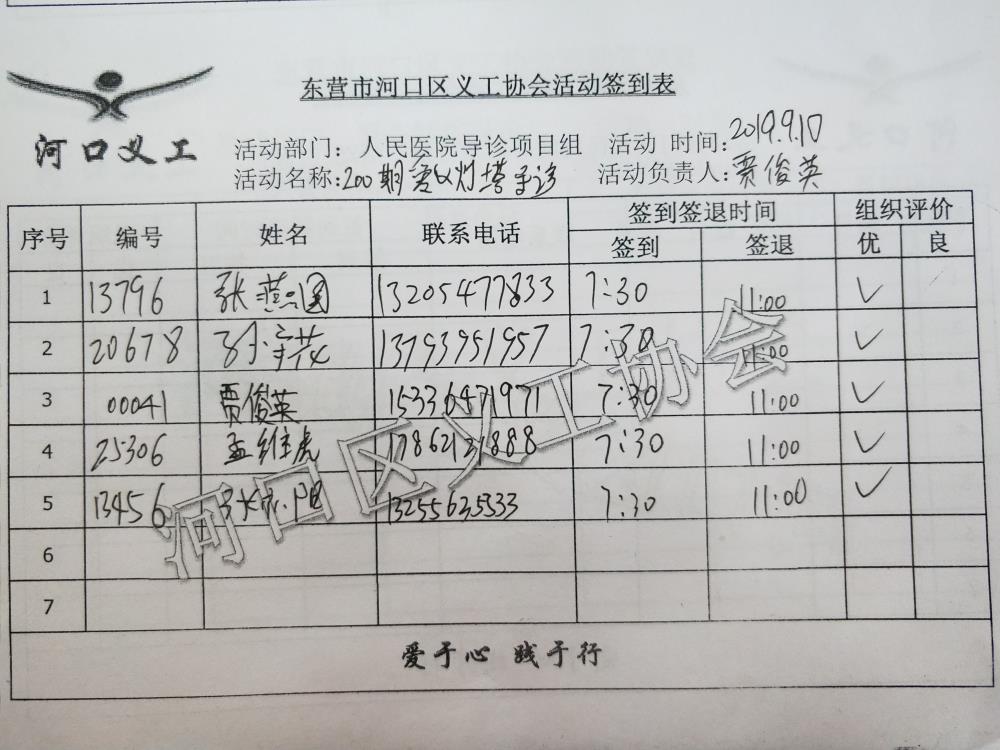 东营市河口区义工协会活动签到表
河口义工
活动部门：人民医院导诊项目组 活动 时间：2019.9.17
活动名称：200期 灯塔导诊 活动负责人：贾俊英
序号 编号 姓名 联系电话 签到签退时间 组织评价
签到 签退 优 良
1 13796 张燕图 13205477833 7:30 11:00 ✓
2 20678 13793951957 7:30 11:00 ✓
3 00041 贾俊英 15336471971 7:30 11:00 ✓
4 25306 孟维虎 17862121888 7:30 11:00 ✓
5 13456 13255635533 7:30 11:00 ✓
6
7
爱于心 践于行
河口区义工协会